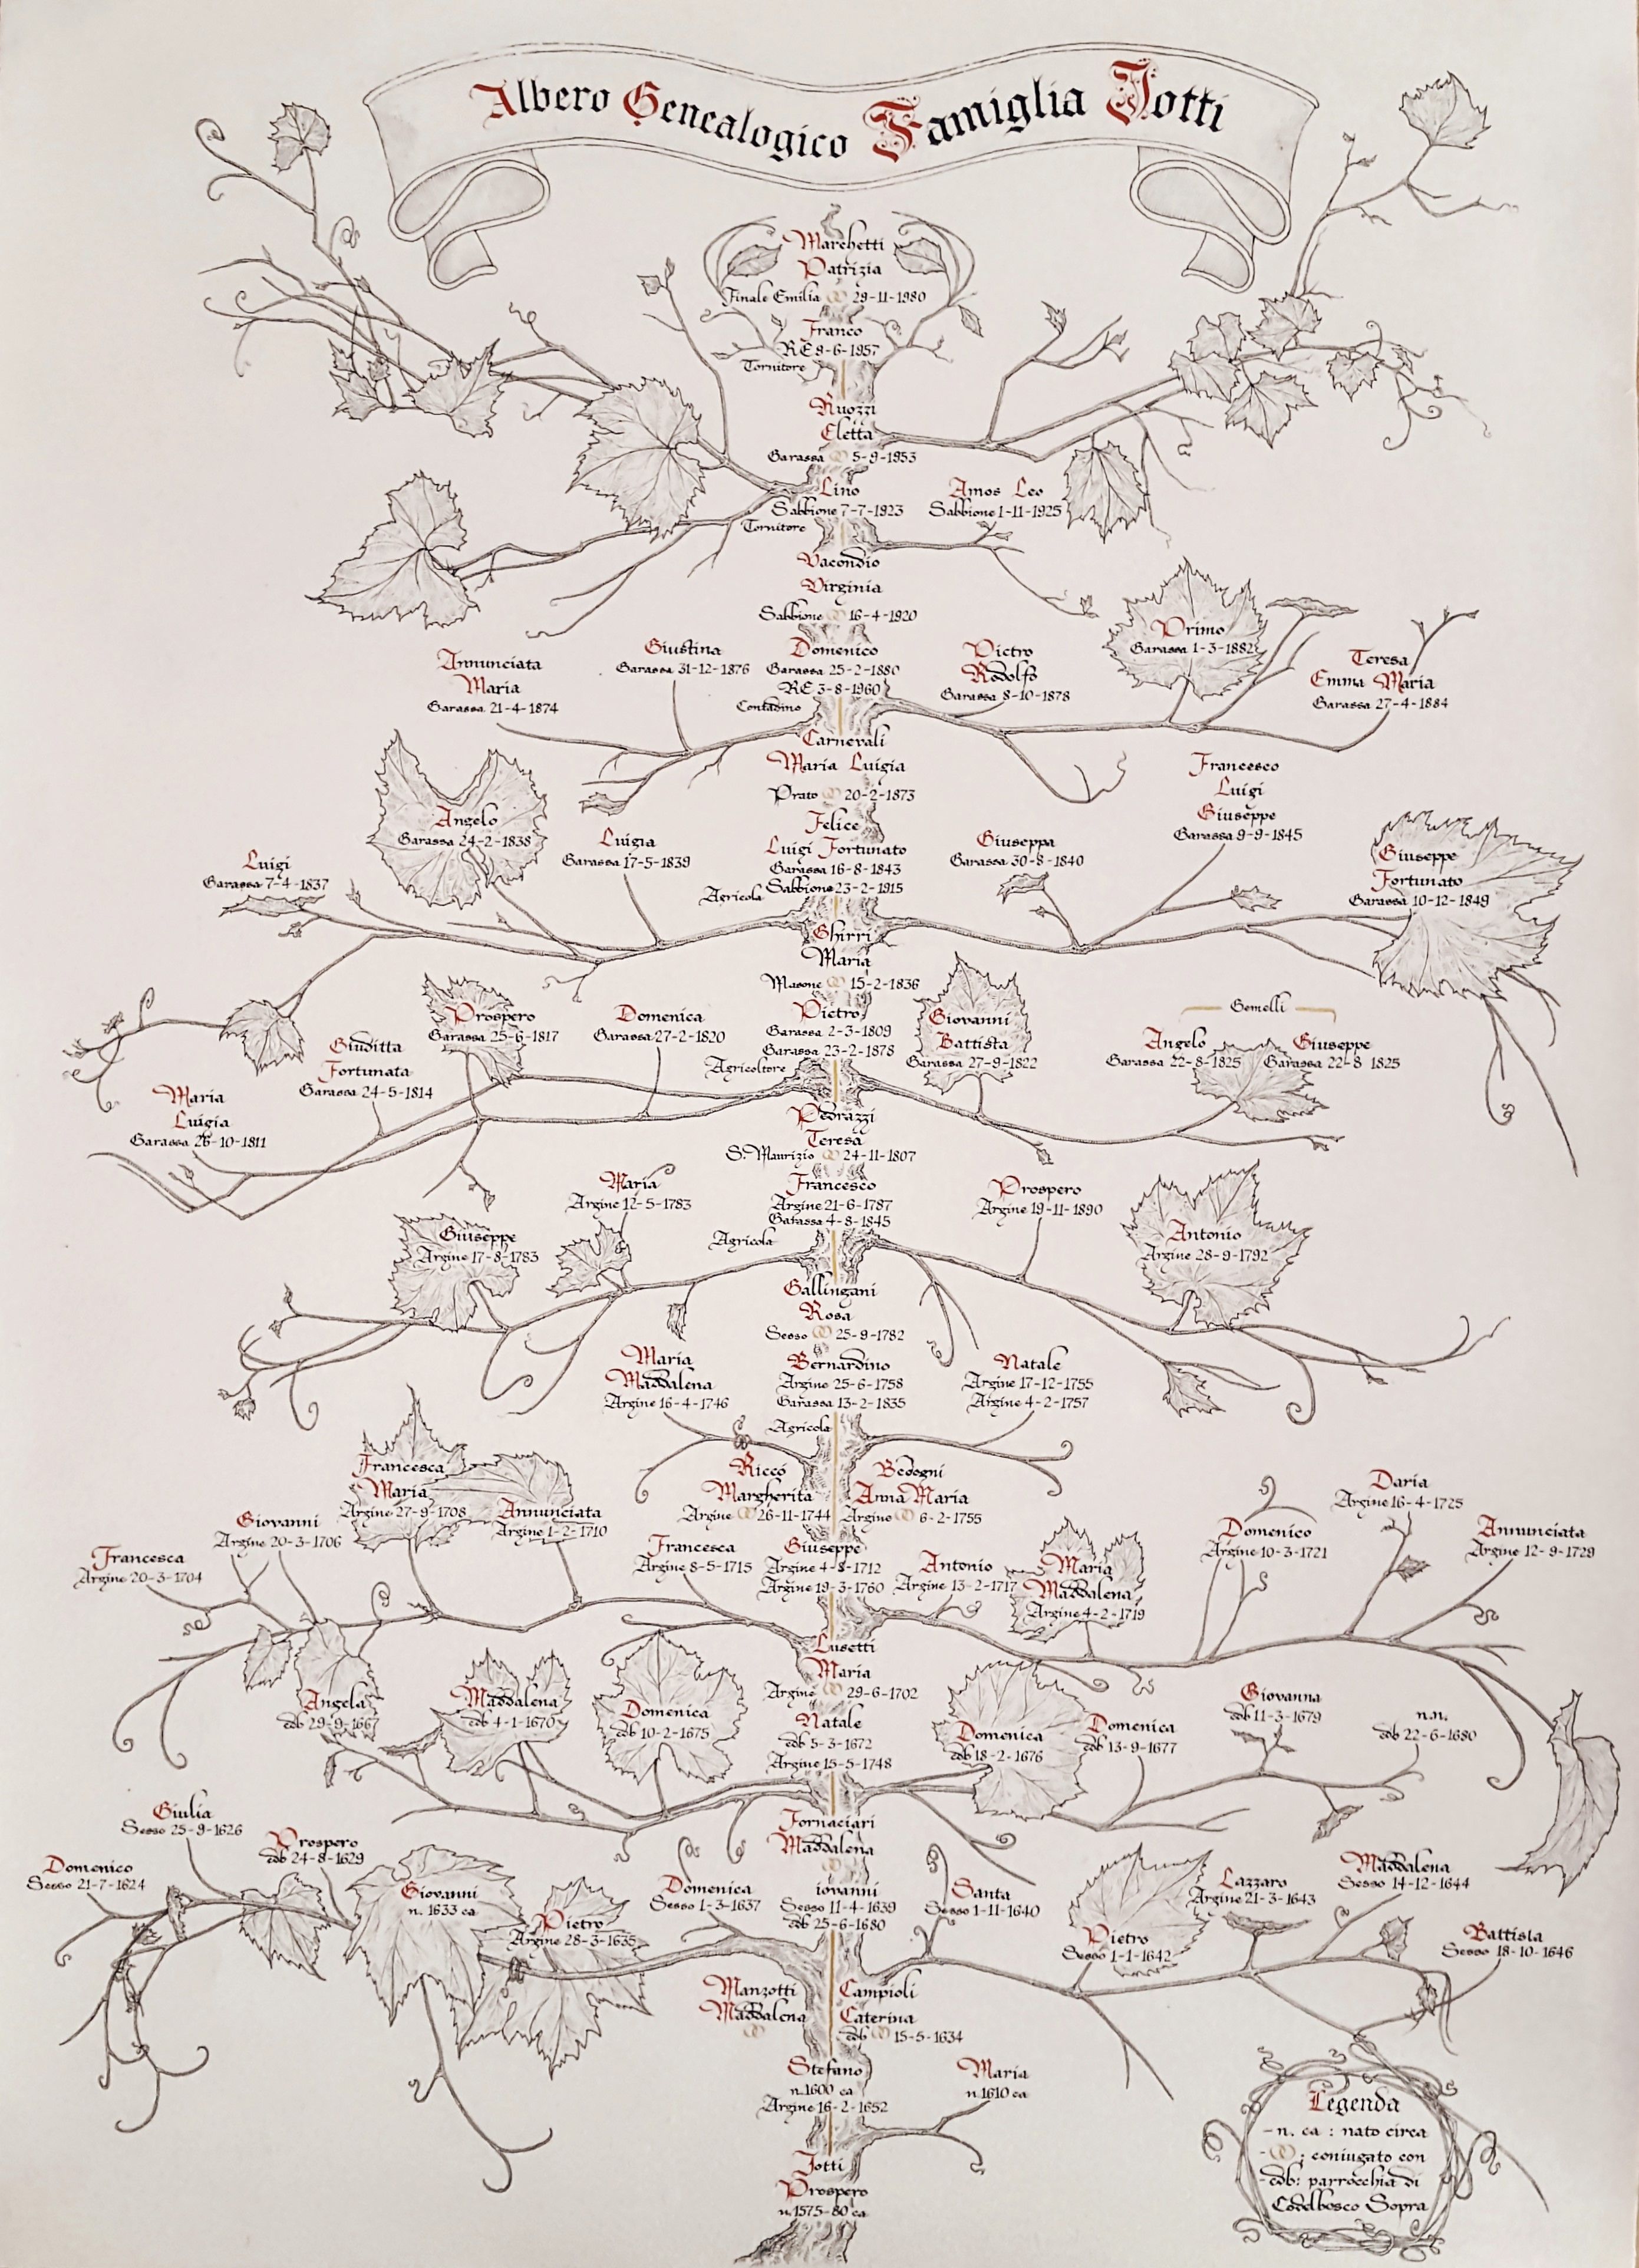 Albero Genealogico Famiglia Jotti
Marchetti
Patrizia
Finale Emilia 29-11-1980
Franco
RE 9-6-1957
Tornitore
Ruozzi
Cletta
Garassa 5-9-1953
Lino
Sabbione 7-7-1923
Tornitore
Amos Leo
Sabbione 1-11-1925
Vacondio
Virginia
Sabbione 16-4-1920
Annunciata
Maria
Garassa 21-4-1874
Giustina
Garassa 31-12-1876
Domenico
Garassa 25-2-1880
RE 3-8-1960
Contadino
Pietro
Rodolfo
Garassa 8-10-1878
Primo
Garassa 1-3-1882
Teresa
Emma Maria
Garassa 27-4-1884
Carnevali
Maria Luigia
Prato 20-2-1873
Luigi
Garassa 7-4-1837
Angelo
Garassa 24-2-1838
Luigia
Garassa 17-5-1839
Felice
Luigi Fortunato
Garassa 16-8-1843
Sabbione 23-2-1915
Agricola
Giuseppa
Garassa 30-8-1840
Francesco
Luigi
Giuseppe
Garassa 9-9-1845
Giuseppe
Fortunato
Garassa 10-12-1849
Ghirri
Maria
Masone 15-2-1836
Maria
Luigia
Garassa 26-10-1811
Giuditta
Fortunata
Garassa 24-5-1814
Prospero
Garassa 25-6-1817
Domenica
Garassa 27-2-1820
Pietro
Garassa 2-3-1809
Garassa 23-2-1878
Agricoltore
Giovanni
Battista
Garassa 27-9-1822
Gemelli
Angelo
Garassa 22-8-1825
Giuseppe
Garassa 22-8 1825
Pedrazzi
Teresa
S. Maurizio 24-11-1807
Giuseppe
Argine 17-8-1783
Maria
Argine 12-5-1783
Francesco
Argine 21-6-1787
Garassa 4-8-1845
Agricola
Prospero
Argine 19-11-1890
Antonio
Argine 28-9-1792
Gallingani
Rosa
Sesso 25-9-1782
Maria
Maddalena
Argine 16-4-1746
Bernardino
Argine 25-6-1758
Garassa 13-2-1835
Agricola
Natale
Argine 17-12-1755
Argine 4-2-1757
Riccó
Margherita
Argine 26-11-1744
Bedogni
Anna Maria
Argine 6-2-1755
Francesca
Argine 20-3-1704
Giovanni
Argine 20-3-1706
Francesca
Maria
Argine 27-9-1708
Annunciata
Argine 1-2-1710
Francesca
Argine 8-5-1715
Giuseppe
Argine 4-8-1712
Argine 19-3-1760
Antonio
Argine 13-2-1717
Maria
Maddalena
Argine 4-2-1719
Domenico
Argine 10-3-1721
Daria
Argine 16-4-1725
Annunciata
Argine 12-9-1729
Lusetti
Maria
Argine 29-6-1702
Angela
cdb 29-9-1667
Maddalena
cdb 4-1-1670
Domenica
cdb 10-2-1675
Natale
cdb 5-3-1672
Argine 15-5-1748
Domenica
cdb 18-2-1676
Domenica
cdb 13-9-1677
Giovanna
cdb 11-3-1679
n.n.
cdb 22-6-1680
Fornaciari
Maddalena
Domenico
Sesso 21-7-1624
Giulia
Sesso 25-9-1626
Prospero
cdb 24-8-1629
Giovanni
n. 1633 ca
Pietro
Argine 28-3-1635
Domenica
Sesso 1-3-1637
iovanni
Sesso 11-4-1639
cdb 25-6-1680
Santa
Sesso 1-11-1640
Pietro
Sesso 1-1-1642
Lazzaro
Argine 21-3-1643
Maddalena
Sesso 14-12-1644
Battista
Sesso 18-10-1646
Manzotti
Maddalena
Campioli
Caterina
cdb 15-5-1634
Stefano
n. 1600 ca
Argine 16-2-1652
Maria
n. 1610 ca
Jotti
Prospero
n. 1575-80 ca
Legenda
- n. ca : nato circa
- : coniugato con
- cdb: parrocchia di
Codelbosco Sopra